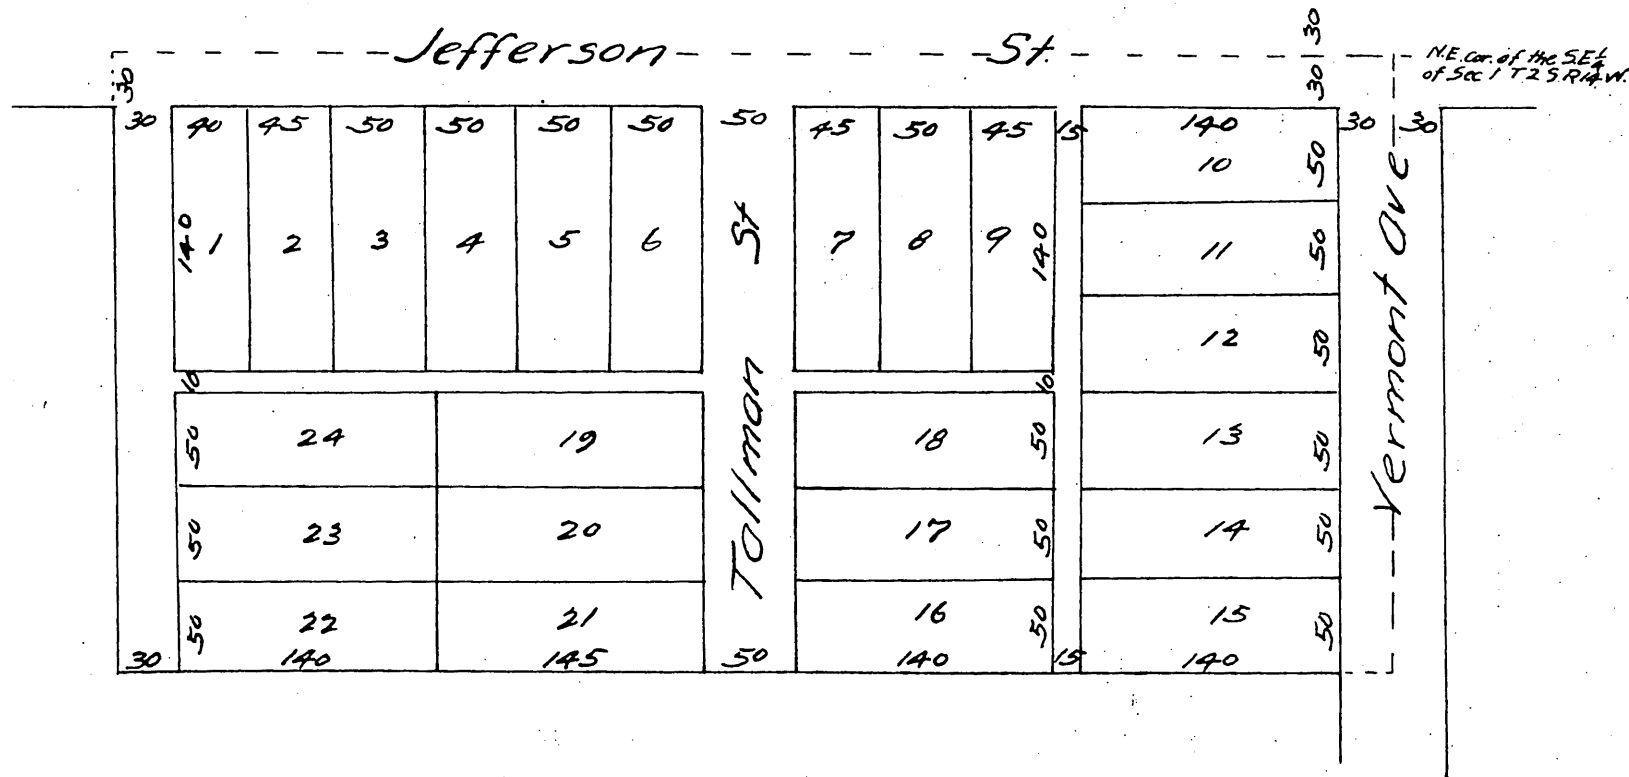 Jefferson St.
30
30
30
N.E. cor. of the S.E ¼
of Sec 1 T 2 S. R 14 W.
30 40 45 50 50 50 50 50 45 50 45 15 140 30 30
10 50
140 1 2 3 4 5 6 7 8 9 140
11 50
12 50
10 10
50 24 19 18 50 13 50
50 23 20 17 50 14 50
50 22 21 16 50 15 50
30 140 145 50 140 15 140
Tollman St
Vermont Ave